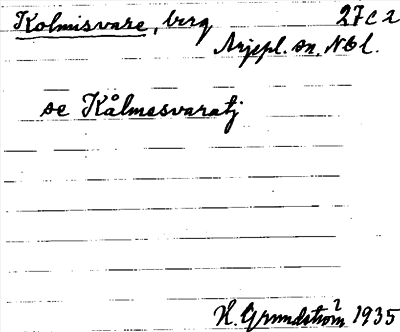 Kolmisvare, berg 27c2
Arjepl. sn. Nbl.
se Kålmesvaratj
H. Grundström 1935